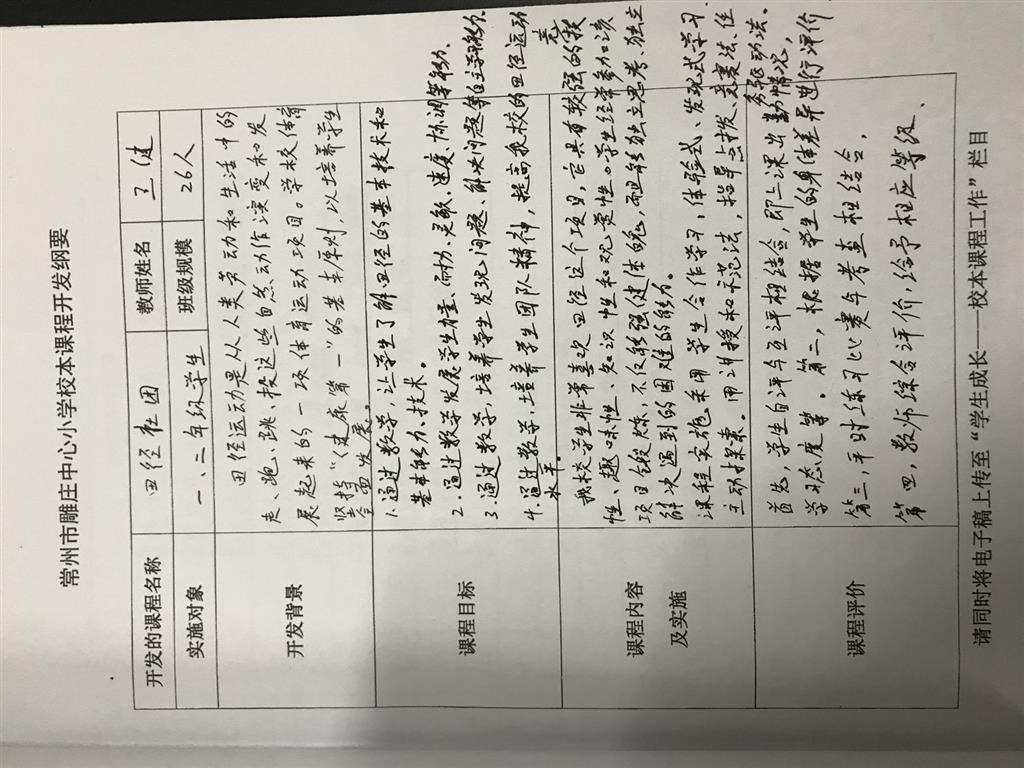 常州市雕庄中心小学校本课程开发纲要
开发的课程名称 田径社团 教师姓名 王健
实施对象 一、二年级学生 班级规模 26人
开发背景
田径运动是从人类劳动和生活中的
走、跑、跳、投这些自然动作演变和发
展起来的一项体育运动项目。学校体育
坚持“健康第一”的基本原则,以培养学生
全面发展。
课程目标
1.通过教学,让学生了解田径的基本技术和
基本能力、技术。
2.通过教学发展学生力量、耐力、灵敏、速度、协调等能力。
3.通过教学,培养学生发现问题、解决问题等自主学习能力。
4.通过教学,培养学生团队精神,提高我校的田径运动
水平。
课程内容
及实施
我校学生非常喜欢田径这个项目,它具有较强的竞技
性、趣味性、层次性和观赏性。学生经常参加该
项目锻炼,不仅能强健体魄,而且能独立思考、独立
解决遇到的困难的能力。
课程实施采用学生合作学习,体验式、发现式学习
主动探索。用讲授和示范法,指导点拨、竞赛法、任
务驱动法。
课程评价
首先,学生自评与互评相结合,即上课出勤情况,
学习态度等。第二,根据学生的身体差异进行评价
第三,平时练习比赛与考查相结合,
第四,教师综合评价,给予相应等级、
请同时将电子稿上传至“学生成长——校本课程工作”栏目